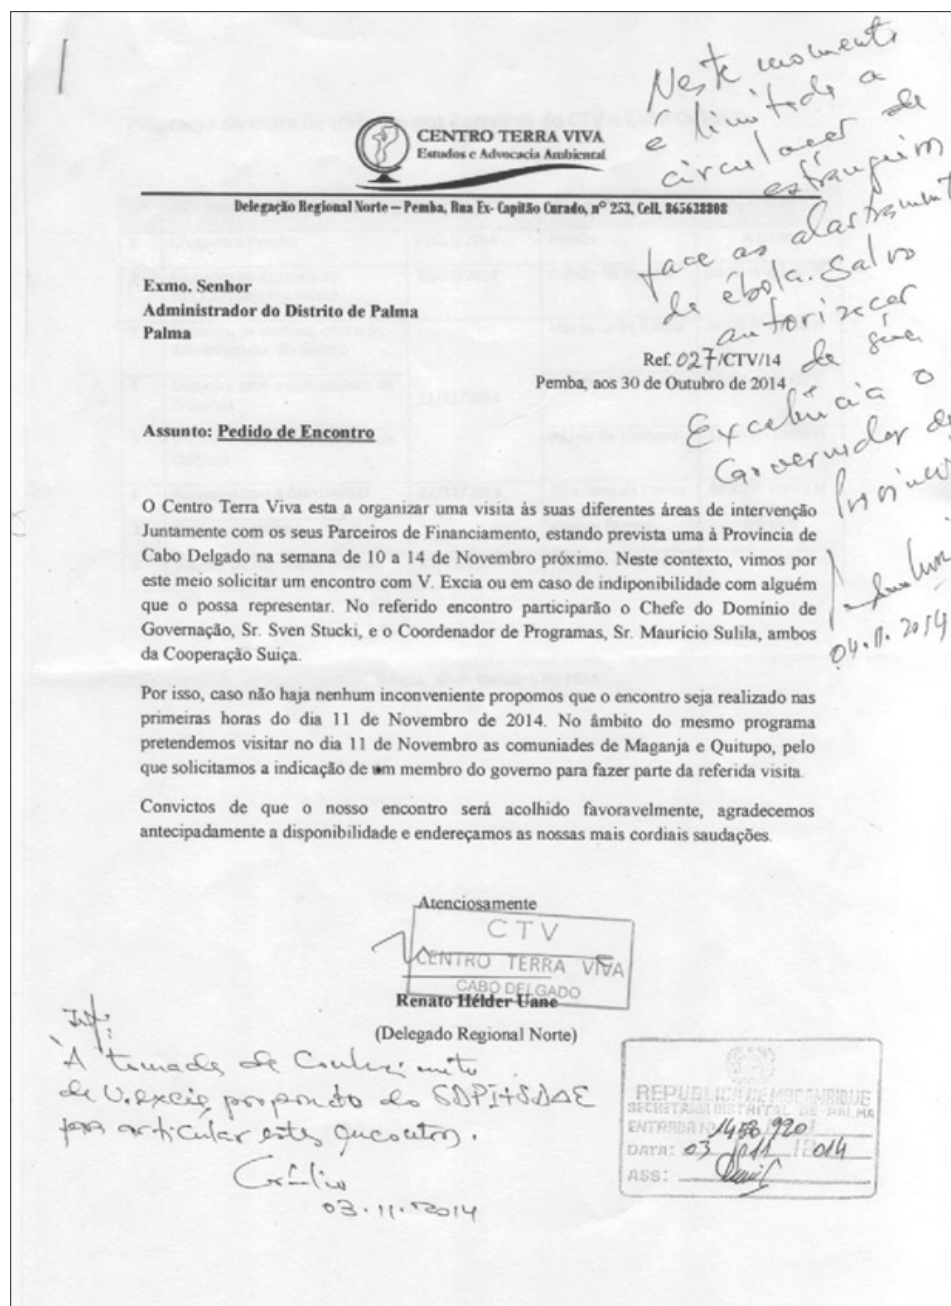 Neste momento
é limitada a
circulacer de
estrangeiros
face ao alastramento
de ébola. Salvo
autorizacer
de sua
Excelência o
Governador da
Província
04.11.2014
CENTRO TERRA VIVA
Estudos e Advocacia Ambiental
Delegação Regional Norte – Pemba, Rua Ex- Capitão Curado, nº 253, Cell. 865638808
Exmo. Senhor
Administrador do Distrito de Palma
Palma
Ref. 027/CTV/14
Pemba, aos 30 de Outubro de 2014
Assunto: Pedido de Encontro
O Centro Terra Viva esta a organizar uma visita às suas diferentes áreas de intervenção
Juntamente com os seus Parceiros de Financiamento, estando prevista uma à Província de
Cabo Delgado na semana de 10 a 14 de Novembro próximo. Neste contexto, vimos por
este meio solicitar um encontro com V. Excia ou em caso de indiponibilidade com alguém
que o possa representar. No referido encontro participarão o Chefe do Domínio de
Governação, Sr. Sven Stucki, e o Coordenador de Programas, Sr. Maurício Sulila, ambos
da Cooperação Suiça.
Por isso, caso não haja nenhum inconveniente propomos que o encontro seja realizado nas
primeiras horas do dia 11 de Novembro de 2014. No âmbito do mesmo programa
pretendemos visitar no dia 11 de Novembro as comuniades de Maganja e Quitupo, pelo
que solicitamos a indicação de um membro do governo para fazer parte da referida visita.
Convictos de que o nosso encontro será acolhido favoravelmente, agradecemos
antecipadamente a disponibilidade e endereçamos as nossas mais cordiais saudações.
Atenciosamente
CTV
CENTRO TERRA VIVA
CABO DELGADO
Renato Hélder Uane
(Delegado Regional Norte)
À tomada de Conhecimento
de V. excia, propondo do SDPI+SDAE
para articular estes encontros.
03.11.2014
REPUBLICA DE MOÇAMBIQUE
SECRETARIA DISTRITAL DE PALMA
ENTRADA Nº 1458/920/
DATA: 03/11/2014
ASS: